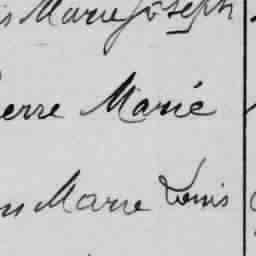 s Marie Joseph
erre Marie
n Marie Louis